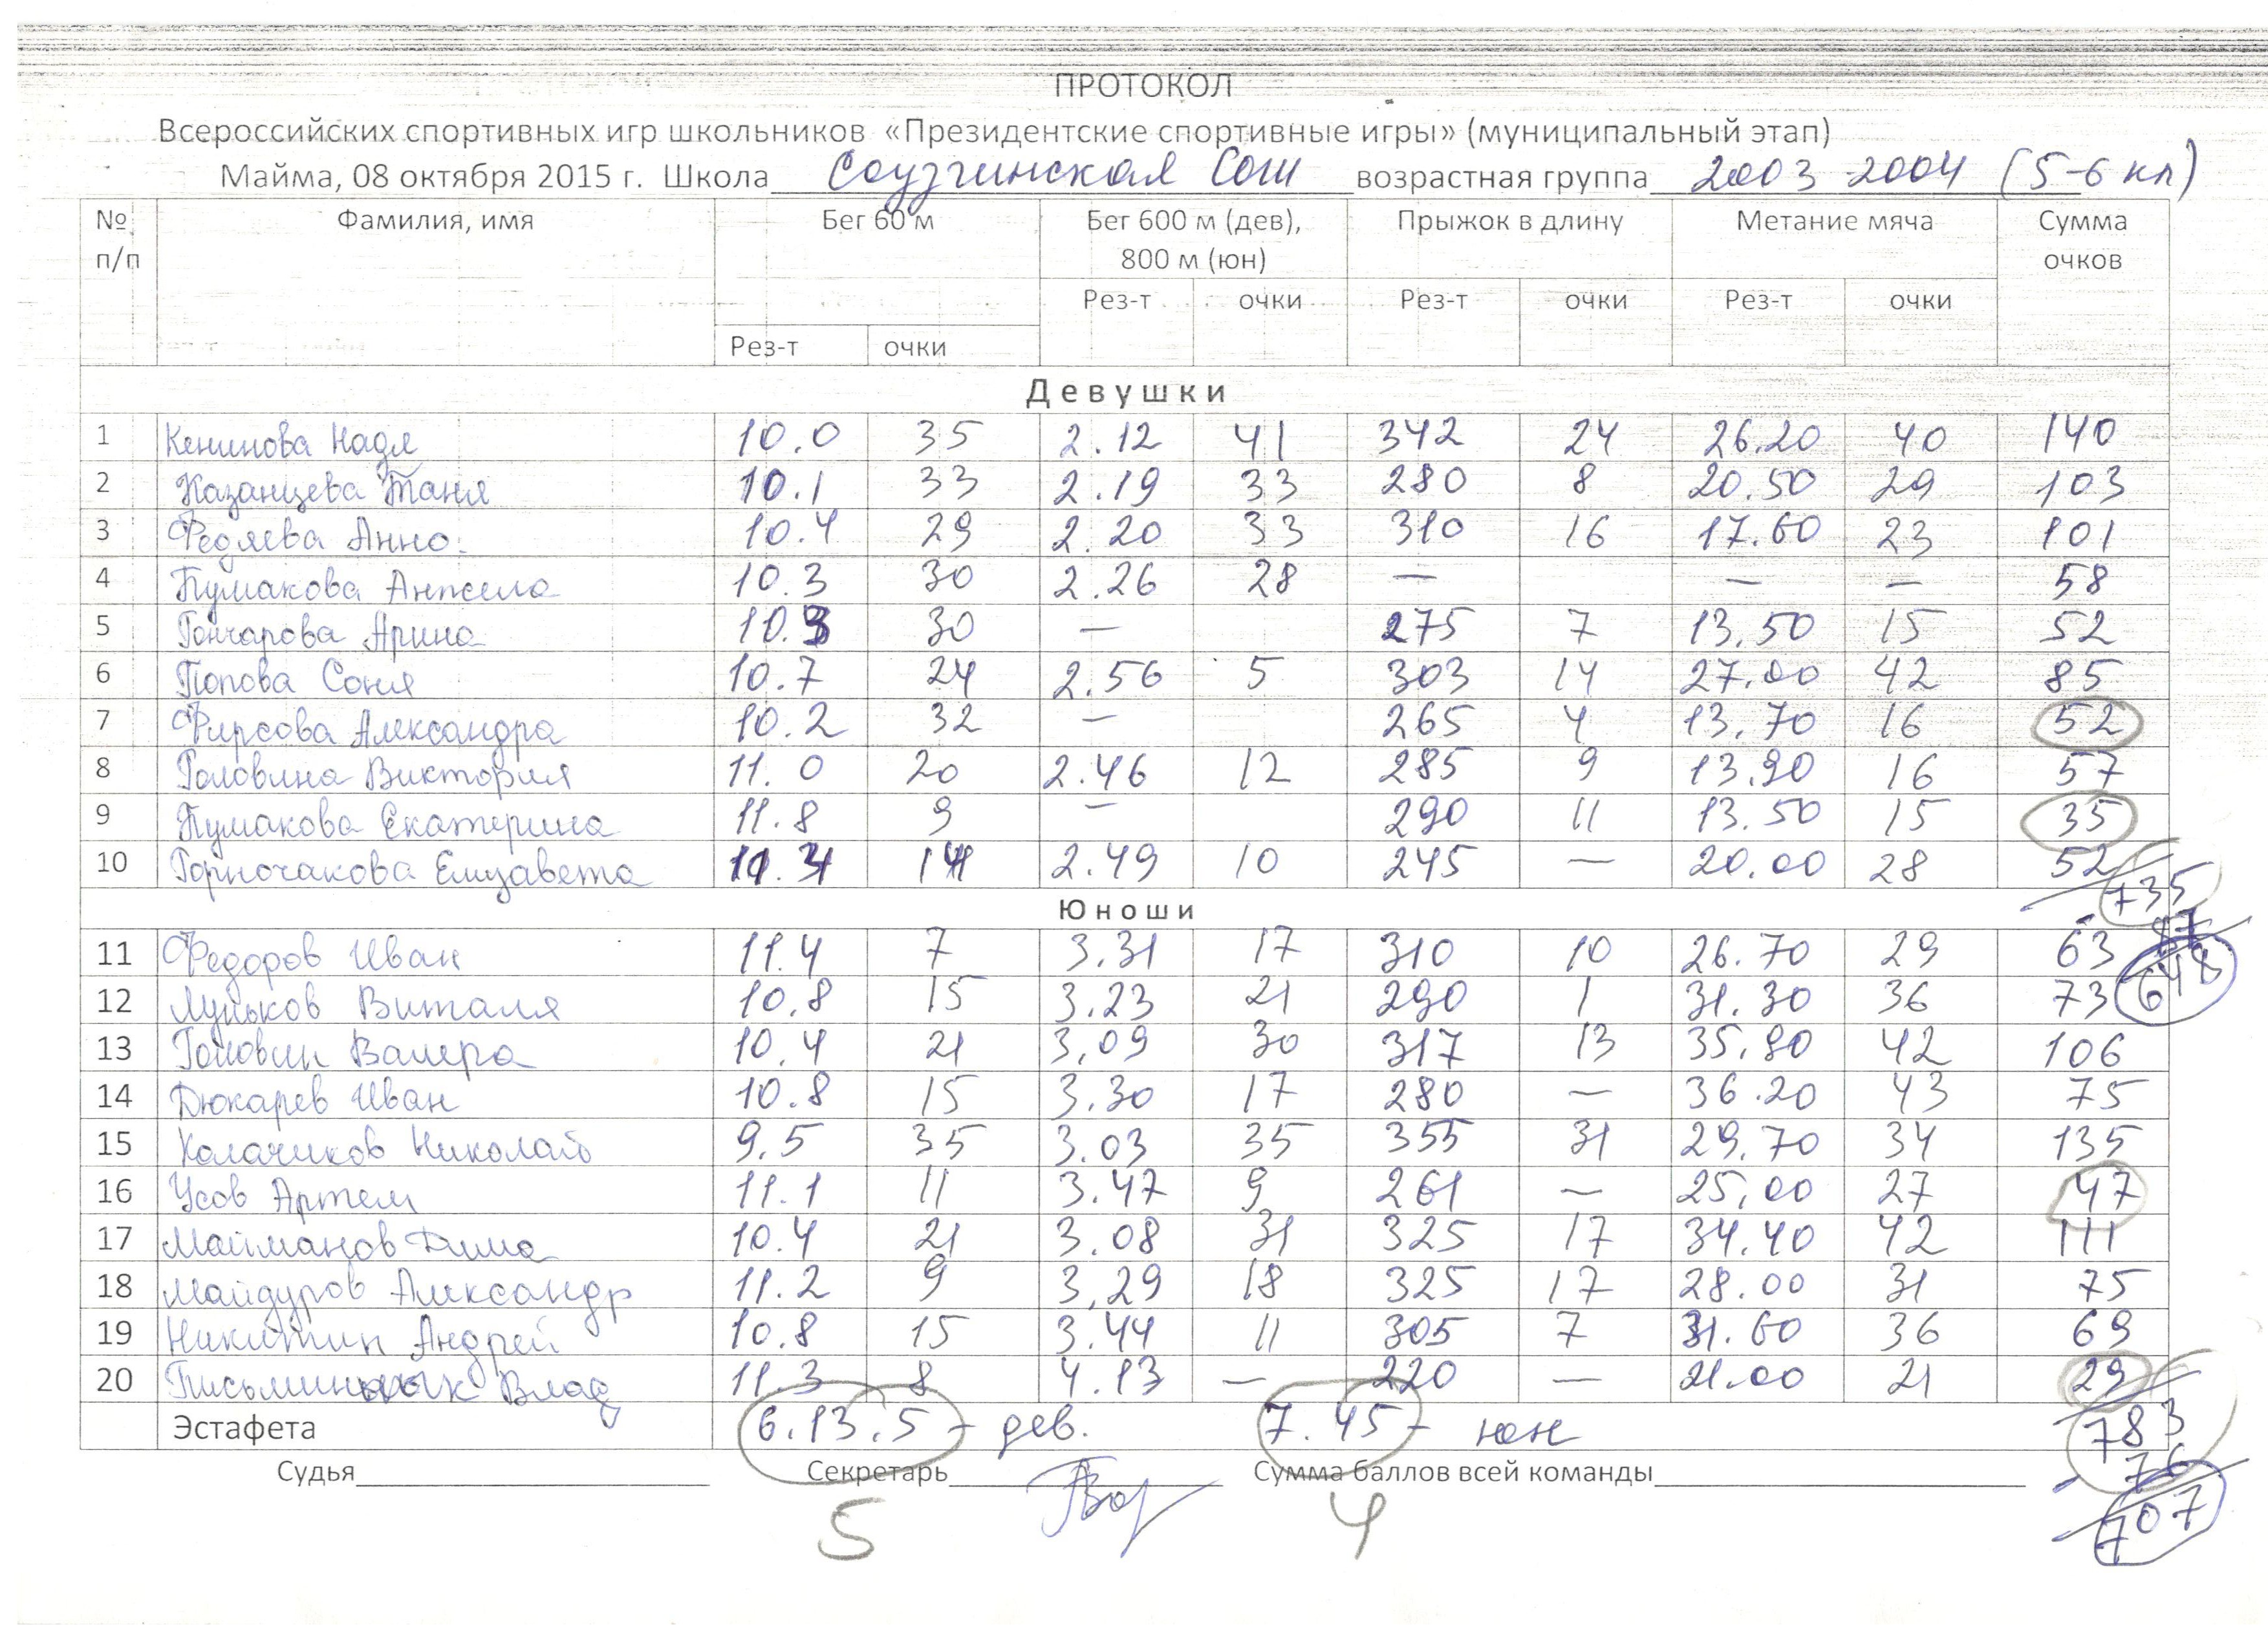 ПРОТОКОЛ
Всероссийских спортивных игр школьников «Президентские спортивные игры» (муниципальный этап)
Майма, 08 октября 2015 г. Школа Соузгинская Сош возрастная группа 2003 - 2004 (5-6 кл)
№ п/п Фамилия, имя Бег 60 м Бег 600 м (дев), 800 м (юн) Прыжок в длину Метание мяча Сумма очков
Рез-т очки Рез-т очки Рез-т очки
Рез-т очки
Девушки
1 Кенинова Надя 10.0 35 2.12 41 342 24 26.20 40 140
2 Казанцева Таня 10.1 33 2.19 33 280 8 20.50 29 103
3 Федяева Анна 10.4 29 2.20 33 310 16 17.60 23 101
4 Пумакова Анжела 10.3 30 2.26 28 — — — 58
5 Гончарова Арина 10.3 30 — 275 7 13.50 15 52
6 Попова Соня 10.7 24 2.56 5 303 14 27.00 42 85
7 Фирсова Александра 10.2 32 — 265 4 13.70 16 52
8 Головина Виктория 11.0 20 2.46 12 285 9 13.90 16 57
9 Пумакова Екатерина 11.8 9 — 290 11 13.50 15 35
10 Горночакова Елизавета 11.4 14 2.49 10 245 — 20.00 28 52
735
Юноши
- 87
11 Федоров Иван 11.4 7 3.31 17 310 10 26.70 29 63
648
12 Луньков Виталя 10.8 15 3.23 21 290 1 31.30 36 73
13 Головин Валера 10.4 21 3,09 30 317 13 35.90 42 106
14 Дюкарев Иван 10.8 15 3.30 17 280 — 36.20 43 75
15 Калачиков Николай 9.5 35 3.03 35 355 31 29.70 34 135
16 Усов Артем 11.1 11 3.47 9 261 — 25,00 27 47
17 Майманов Дима 10.4 21 3.08 31 325 17 34.40 42 111
18 Майдуров Александр 11.2 9 3,29 18 325 17 28.00 31 75
19 Никитин Андрей 10.8 15 3.44 11 305 7 31.60 36 69
20 Влад 11.3 8 4.13 — 220 — 21.00 21 29
Эстафета 6.13.5 - дев. 7.45 - юн 783
- 76
Судья Секретарь Сумма баллов всей команды
707
5 4